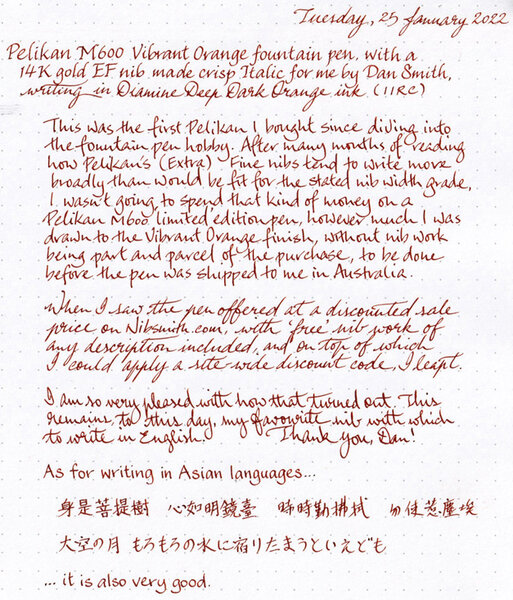 Tuesday, 25 January 2022
Pelikan M600 Vibrant Orange fountain pen, with a
14K gold EF nib made crisp Italic for me by Dan Smith,
writing in Diamine Deep Dark Orange ink (IIRC)
This was the first Pelikan I bought since diving into
the fountain pen hobby. After many months of reading
how Pelikan's (Extra) Fine nibs tend to write more
broadly than would be fit for the stated nib width grade,
I wasn't going to spend that kind of money on a
Pelikan M600 limited edition pen, however much I was
drawn to the Vibrant Orange finish, without nib work
being part and parcel of the purchase, to be done
before the pen was shipped to me in Australia.
When I saw the pen offered at a discounted sale
price on Nibsmith.com, with 'free' nib work of
any description included, and on top of which
I could apply a site-wide discount code, I leapt.
I am so very pleased with how that turned out. This
remains, to this day, my favourite nib with which
to write in English. Thank you, Dan!
As for writing in Asian languages...
身是菩提樹 心如明鏡臺 時時勤拂拭 勿使惹塵埃
大空の月 もろもろの水に宿りたまうといえども
... it is also very good.